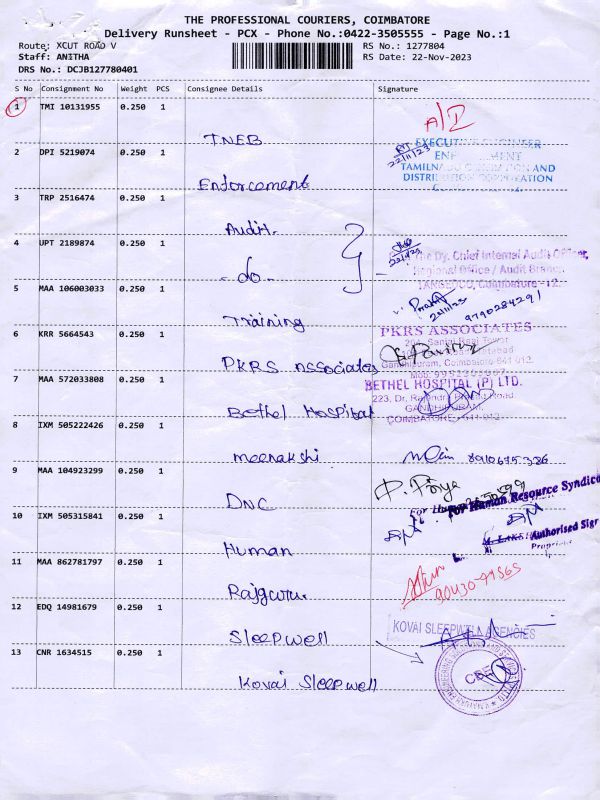 THE PROFESSIONAL COURIERS, COIMBATORE
Delivery Runsheet - PCX - Phone No.:0422-3505555 - Page No.:1
Route: XCUT ROAD V
RS No.: 1277804
Staff: ANITHA
RS Date: 22-Nov-2023
DRS No.: DCJB127780401
S No Consignment No Weight PCS Consignee Details Signature
1 TMI 10131955 0.250 1 TNEB
A/I
EXECUTIVE ENGINEER
22/11/23
2 DPI 5219074 0.250 1 Enforcement
AND
DISTRIBUTION CORPORATION
3 TRP 2516474 0.250 1 Audit.
4 UPT 2189874 0.250 1 - do -
Dy. Chief Internal Audit Officer,
Regional Office / Audit Branch,
TANGEDCO, Coimbatore - 12.
5 MAA 106003033 0.250 1 Training
22/11/23
9790284291
6 KRR 5664543 0.250 1 PKRS Associates
PKRS ASSOCIATES
Gandhipuram, Coimbatore-641 012.
7 MAA 572033808 0.250 1 Bethel Hospital
BETHEL HOSPITAL (P) LTD.
223, Dr. Rajendra Prasad Road,
GANDHIPURAM,
COIMBATORE - 641 012.
8 IXM 505222426 0.250 1 meenakshi
9 MAA 104923299 0.250 1 DNC
For Human Resource Syndica
10 IXM 505315841 0.250 1 Human
Authorised Sign
11 MAA 862781797 0.250 1 Rajguru.
12 EDQ 14981679 0.250 1 Sleepwell
KOVAI SLEEPWELL AGENCIES
13 CNR 1634515 0.250 1 Kovai Sleepwell
CBE